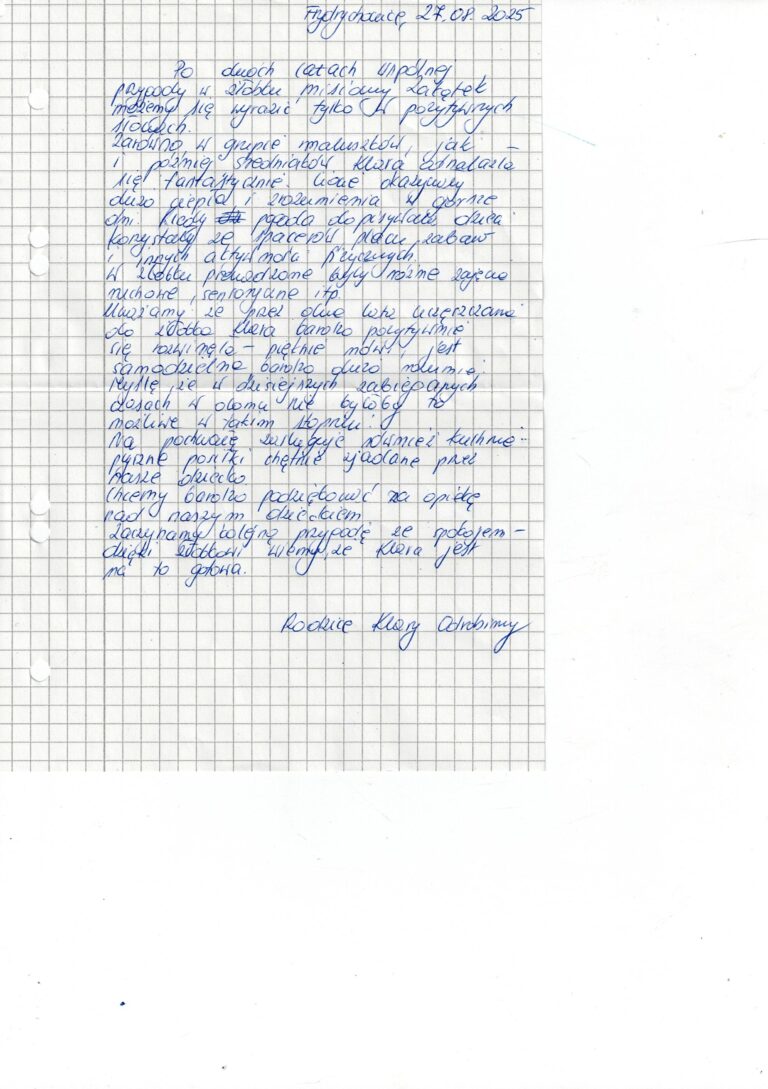 Frydrychowice, 27.08.2025
Po dwóch latach wspólnej
przygody w żłobku misiowy zakątek
możemy się wyrazić tylko w pozytywnych
słowach.
Zarówno w grupie maluszków, jak –
i później średniaków Klara odnalazła
się fantastycznie. Ciocie okazywały
dużo ciepła i zrozumienia w gorsze
dni. Kiedy pogoda dopisywała dzieci
korzystały ze spacerów, placu zabaw
i innych aktywności fizycznych.
W żłobku prowadzone były różne zajęcia
ruchowe, sensoryczne itp.
Uważamy że przez dwa lata uczęszczania
do żłobka Klara bardzo pozytywnie
się rozwinęła – pięknie mówi, jest
samodzielna bardzo dużo rozumie,
Myślę, że w dzisiejszych zabieganych
czasach w domu nie byłoby to
możliwe w takim stopniu!
Na pochwałę zasługuje również kuchnia –
pyszne posiłki chętnie zjadane przez
nasze dziecko.
Chcemy bardzo podziękować za opiekę
nad naszym dzieckiem
Zaczynamy kolejną przygodę ze spokojem –
dzięki żłobkowi wiemy, że Klara jest
na to gotowa.
Rodzice Klary Odrobiny